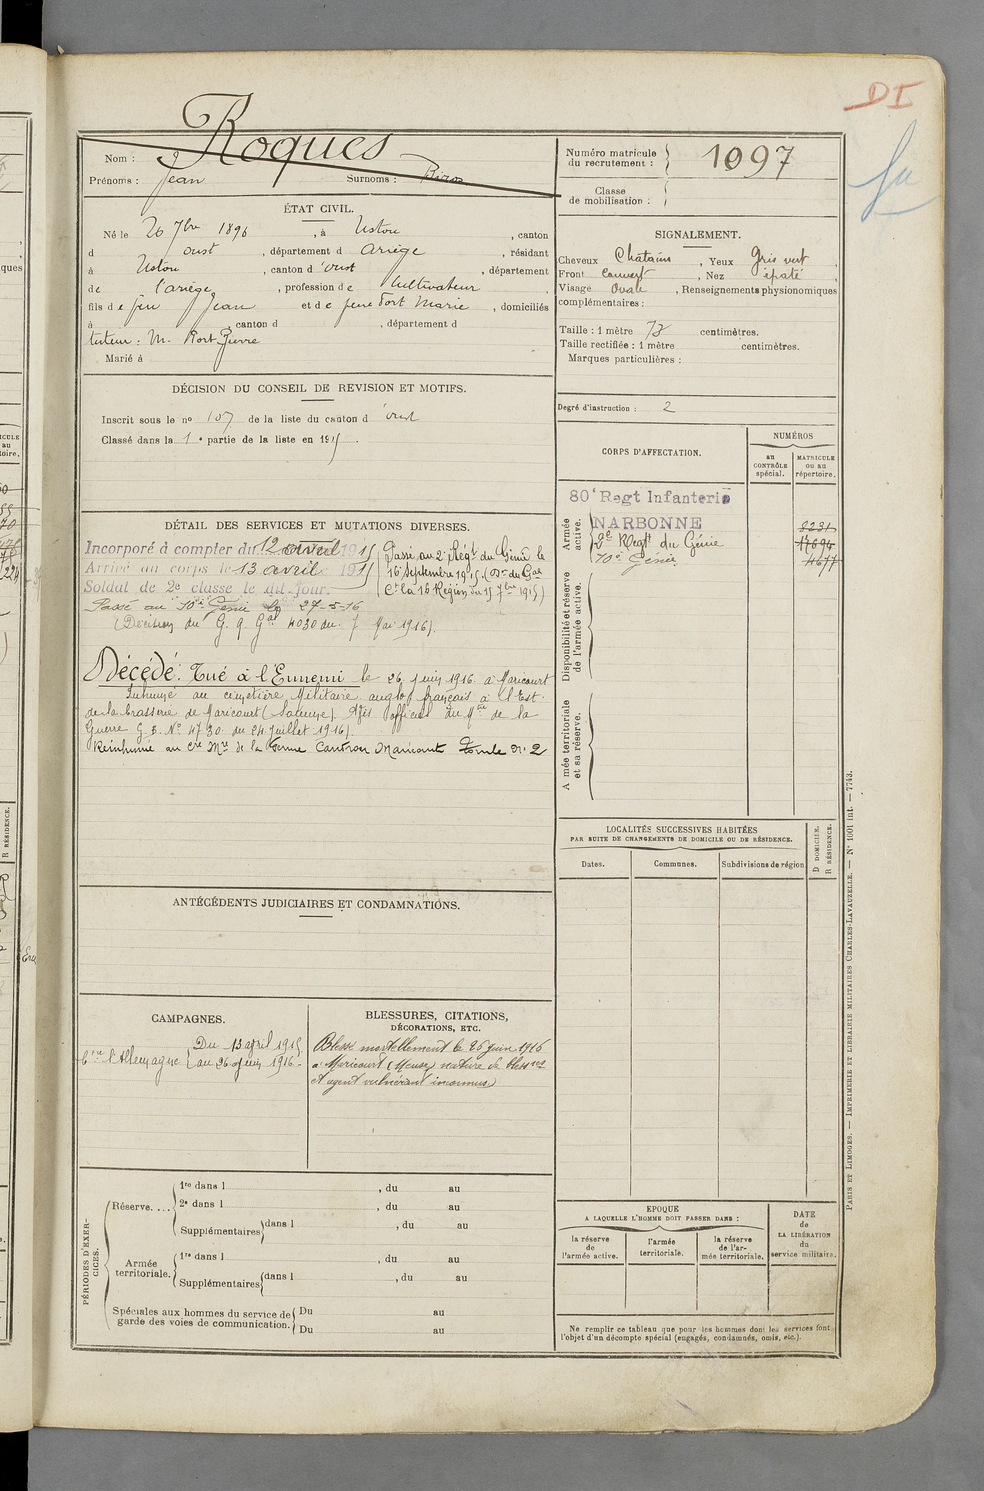 DI
Roques
Nom :
Prénoms : Jean Surnoms : Biros
Numéro matricule du recrutement : 1097
Classe de mobilisation :
ÉTAT CIVIL.
Né le 26 7bre 1896, à Ustou, canton
d oust, département d Ariège, résidant
à Ustou, canton d'oust, département
de l'ariège, profession de Cultivateur
fils de feu Jean et de feue Port Marie, domiciliés
à , canton d , département d
tuteur : M. Port Pierre
Marié à
SIGNALEMENT.
Cheveux Chatains, Yeux Gris vert,
Front couvert, Nez épaté
Visage Ovale, Renseignements physionomiques
complémentaires :
Taille : 1 mètre 72 centimètres.
Taille rectifiée : 1 mètre centimètres.
Marques particulières :
Degré d'instruction : 2
DÉCISION DU CONSEIL DE REVISION ET MOTIFS.
Inscrit sous le no 107 de la liste du canton d'oust
Classé dans la 1e partie de la liste en 1915.
CORPS D'AFFECTATION.
NUMÉROS
au CONTRÔLE spécial.
MATRICULE ou au répertoire.
Armée active.
80e Regt Infanterie
NARBONNE 8231
2e Regt du Génie 17694
10e Génie. 4677
Disponibilité et réserve de l'armée active.
Armée territoriale et sa réserve.
DÉTAIL DES SERVICES ET MUTATIONS DIVERSES.
Incorporé à compter du 12 avril 1915
Arrivé au corps le 13 avril 1915
Soldat de 2e classe le dit jour.
Passé au 2e Régt du Génie le
16 Septembre 1915. (On du Gal
Ct la 16 Région du 15 7bre 1915)
Passé au 10e Génie le 27-5-16
(Décision du G. Q. Gal 4030 du 7 Mai 1916).
Décédé : Tué à l'Ennemi le 26 juin 1916 à Maricourt
Inhumé au cimetière Militaire anglo français à l'Est
de la brasserie de Maricourt (Somme). Avis officiel du Mtre de la
Guerre G. B. No 4730 du 24 juillet 1916).
Réinhumé au cre Mre de la Ferme Maricourt Tombe No 2
LOCALITÉS SUCCESSIVES HABITÉES
PAR SUITE DE CHANGEMENTS DE DOMICILE OU DE RÉSIDENCE.
Dates.
Communes.
Subdivisions de région
D DOMICILE.
R RÉSIDENCE.
ANTÉCÉDENTS JUDICIAIRES ET CONDAMNATIONS.
CAMPAGNES.
Ctre l'Allemagne
Du 13 april 1915
au 26 juin 1916.
BLESSURES, CITATIONS,
DÉCORATIONS, ETC.
Blessé mortellement le 26 juin 1916
à Maricourt (Meuse) nature de blessures
et agent vulnérant inconnus)
PÉRIODES D'EXERCICES.
Réserve....
1re dans l , du au
2e dans l , du au
Supplémentaires dans l , du au
Armée territoriale.
1re dans l , du au
Supplémentaires dans l , du au
Spéciales aux hommes du service de garde des voies de communication.
Du au
Du au
EPOQUE
A LAQUELLE L'HOMME DOIT PASSER DANS :
la réserve de l'armée active.
l'armée territoriale.
la réserve de l'armée territoriale.
DATE de LA LIBÉRATION du service militaire.
Ne remplir ce tableau que pour les hommes dont les services font
l'objet d'un décompte spécial (engagés, condamnés, omis, etc.).
PARIS ET LIMOGES. — IMPRIMERIE ET LIBRAIRIE MILITAIRES CHARLES-LAVAUZELLE. — No 1001 int. — 7743.